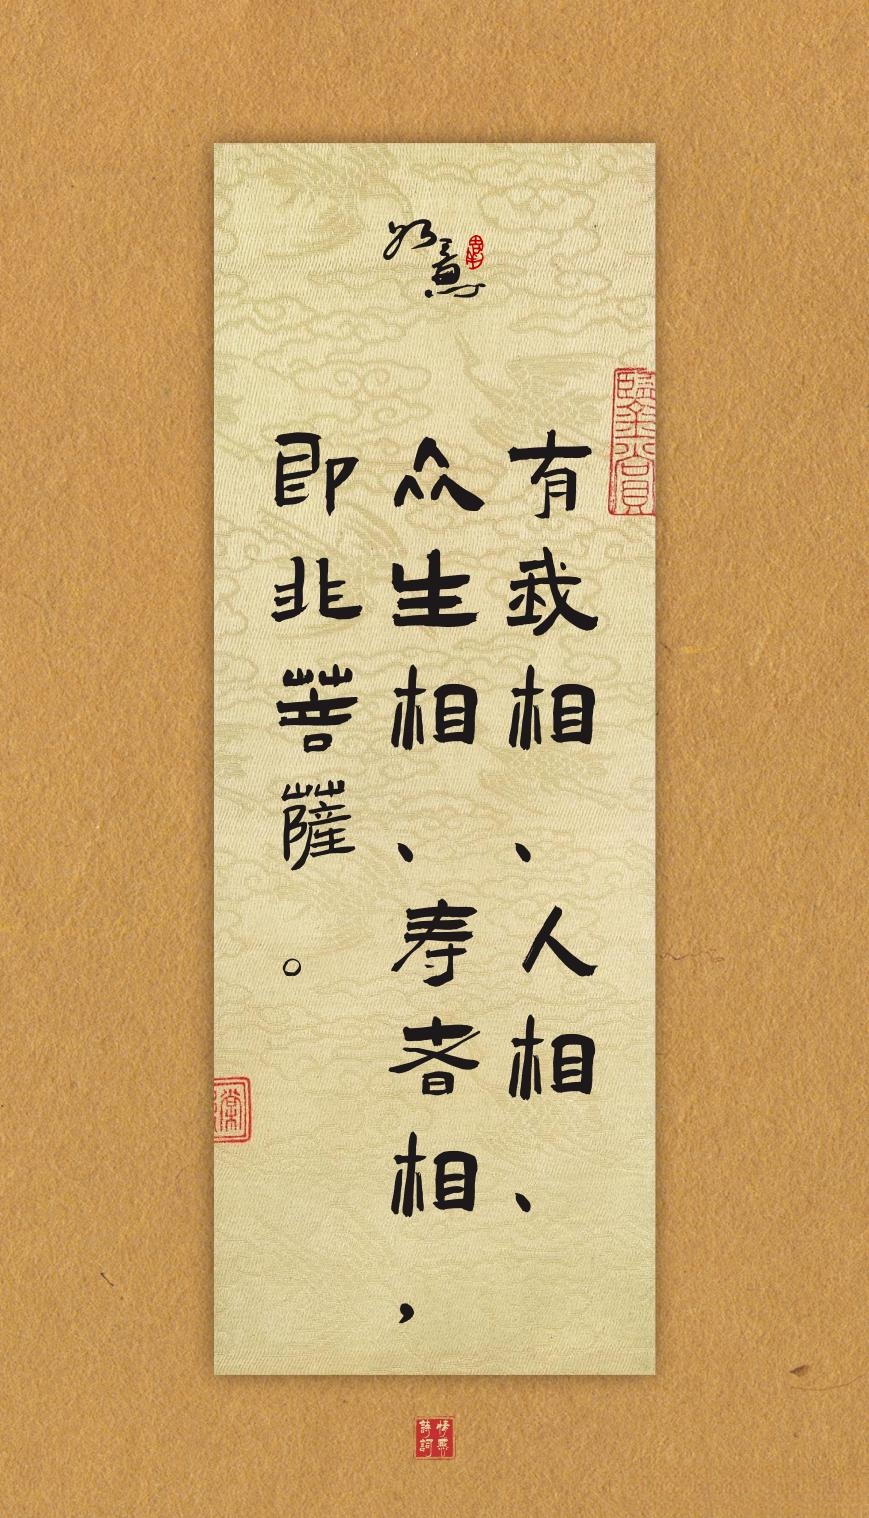 如意
有我相、人相、
众生相、寿者相，
即非菩薩。